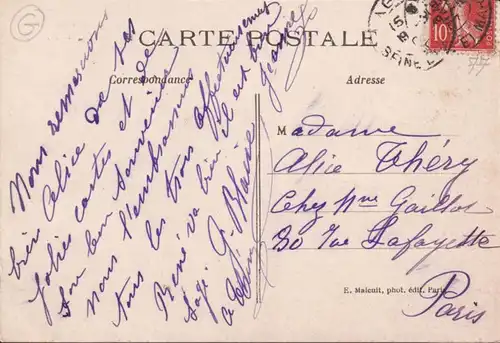 CARTE POSTALE
Correspondance
Adresse
Nous remercions
bien Alice de ses
jolies cartes et de
son bon souvenir
nous l'embrassons
tous les trois affectueusement
René va bien il est bien
sage G. Blaise
M adame
Alice Théry
Chez Mme Gaillot
30 rue Lafayette
Paris
E. Malcuit, phot. édit. Paris
10
SEINE
G